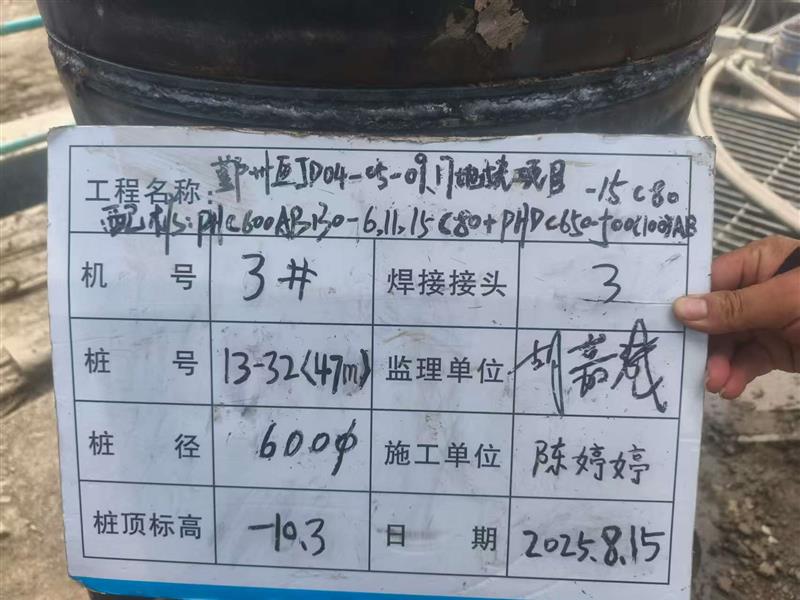 工程名称: 鄞州区JD04-05-09.17地块项目 -15 C80
配桩: PHC600AB130-6,11,15 C80+PHDC650-500(100)AB
机 号 3# 焊接接头 3
桩 号 13-32(47m) 监理单位
桩 径 600ϕ 施工单位 陈婷婷
桩顶标高 -10.3 日 期 2025.8.15